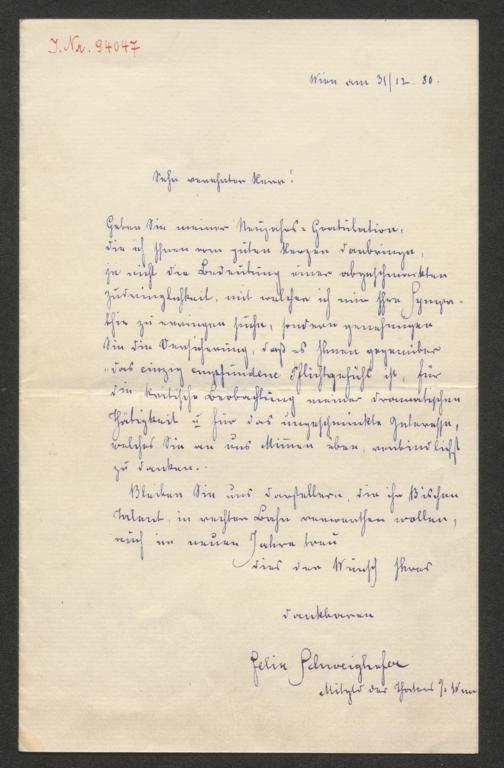 I. Nr. 94047
Wien am 31/12. 80.
Sehr verehrter Herr!
Geben Sie meiner Neujahrs=Gratulation,
die ich Ihnen von guten Herzen darbringe,
ja nicht die Bedeutung einer abgeschmackten
Zudringlichkeit, mit welcher ich mir Ihre Sympa-
thie zu erringen suche, sondern genehmigen
Sie die Versicherung, daß es Ihnen gegenüber
das einzig empfundene Pflichtgefühl ist, für
die kritische Beobachtung meiner dramatischen
Thätigkeit u für das ungeschminkte Interesse,
welches Sie an uns Mimen üben, verbindlichst
zu danken.
Bleiben Sie uns Darstellern, die ihr Bischen
Talent, in rechter Bahn verwerthen wollen,
auch im neuen Jahre treu
dies der Wunsch Ihres
dankbaren
Felix Schweighofer
Mitgld des Theaters Wien